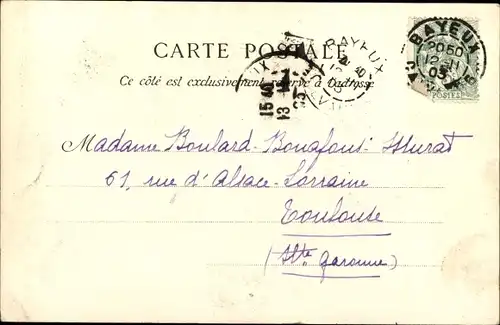 CARTE POSTALE
Ce côté est exclusivement réservé à l'adresse
BAYEUX
20 50
12 - 11
03
BAYEUX
15 40
13 - 11
03
POSTES
Madame Boulard-Bonafous-Murat
61, rue d'Alsace-Lorraine
Toulouse
(Hte Garonne)